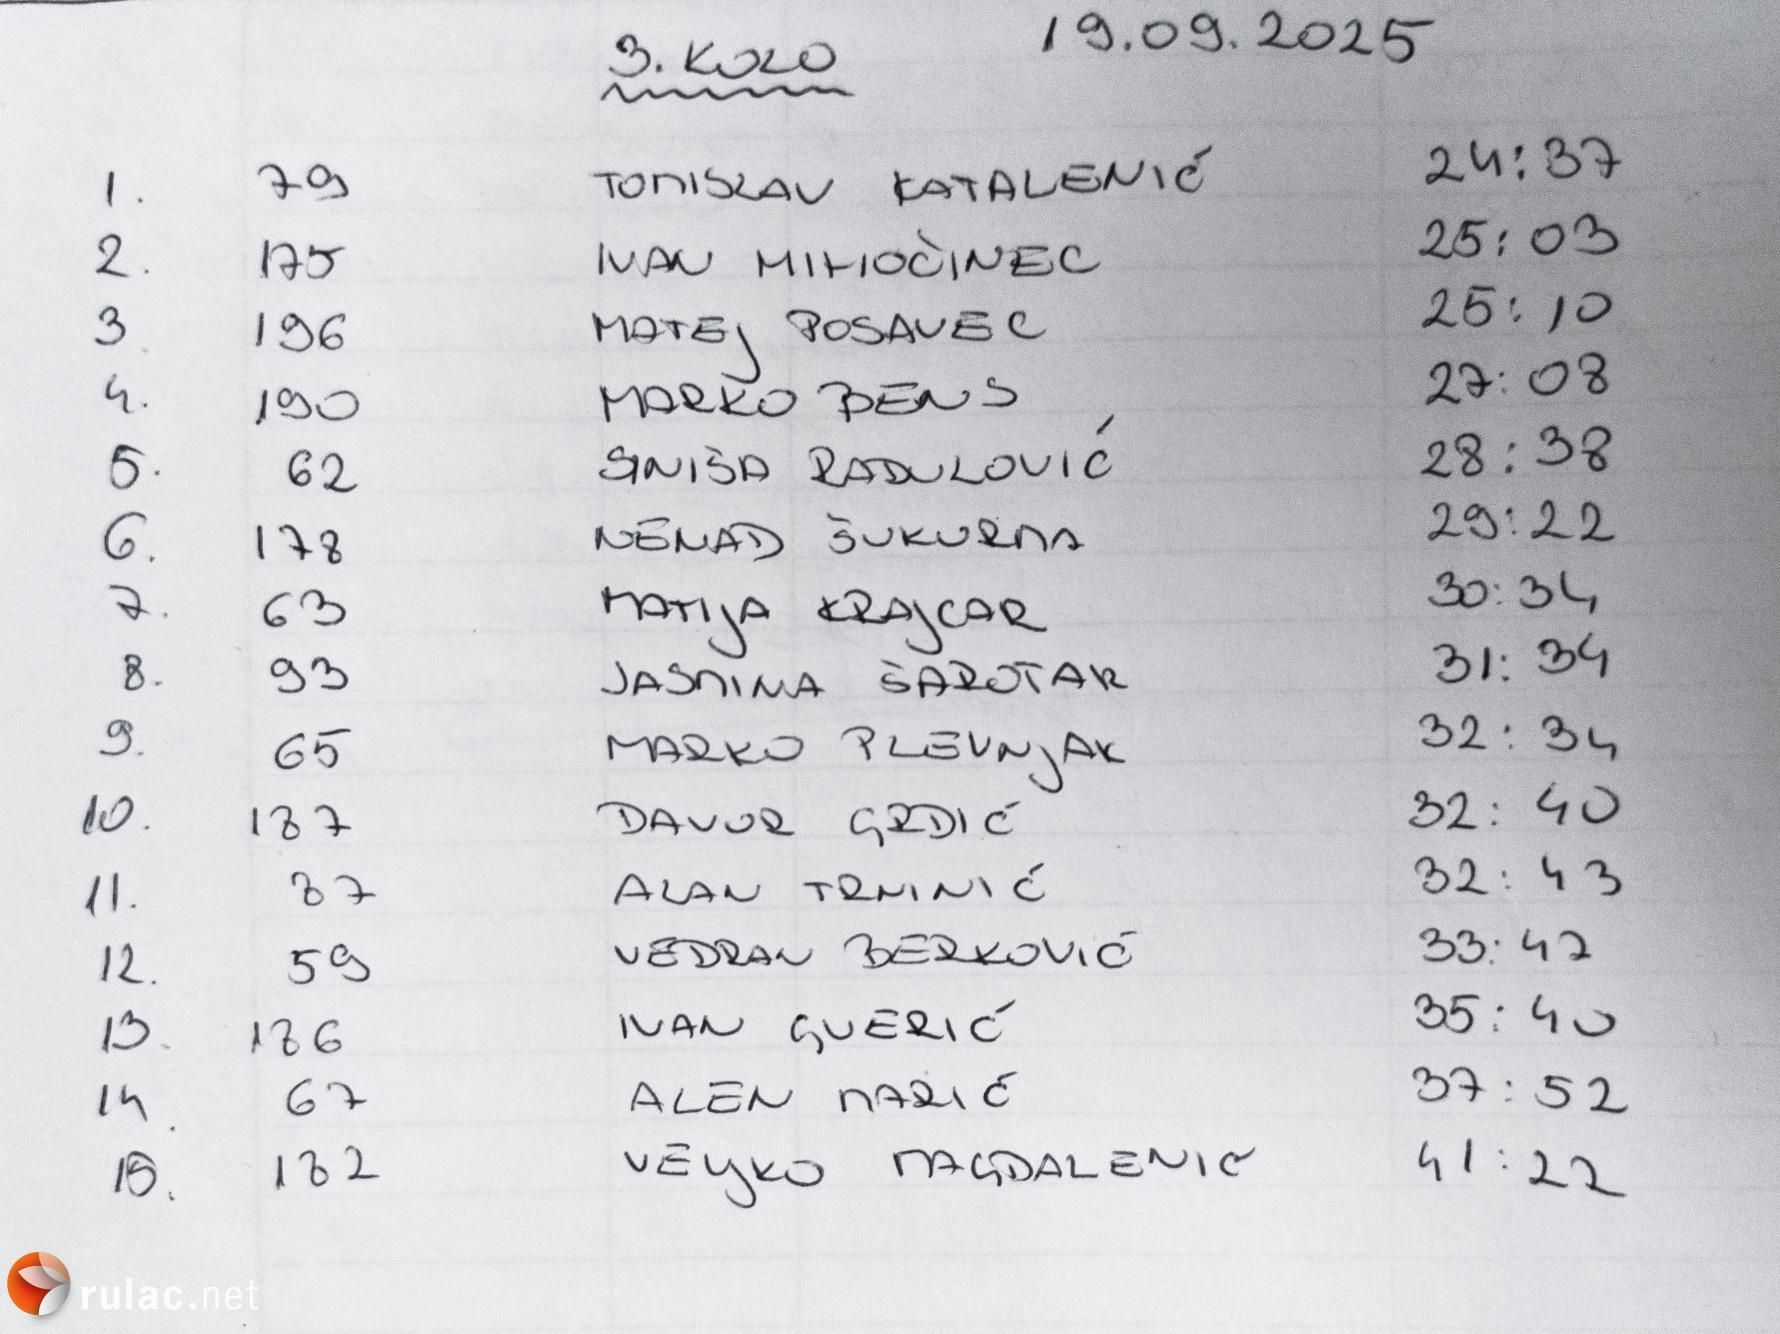 3. KOLO 19.09.2025
1. 79 TOMISLAV KATALENIĆ 24:37
2. 175 IVAN MIHOČINEC 25:03
3 196 MATEJ POSAVEC 25:10
4. 190 MARKO BENS 27:08
5. 62 SINIŠA RADULOVIĆ 28:38
6. 178 NENAD ŠUKURMA 29:22
7. 63 MATIJA KRAJCAR 30:34
8. 93 JASMINA ŠAROTAR 31:34
9. 65 MARKO PLEVNJAK 32:34
10. 187 DAVOR GRDIĆ 32:40
11. 87 ALAN TRNINIĆ 32:43
12. 59 VEDRAN BERKOVIĆ 33:47
13. 186 IVAN GVERIĆ 35:40
14. 67 ALEN MARIĆ 37:52
15. 182 VELJKO MAGDALENIĆ 41:22
rulac.net